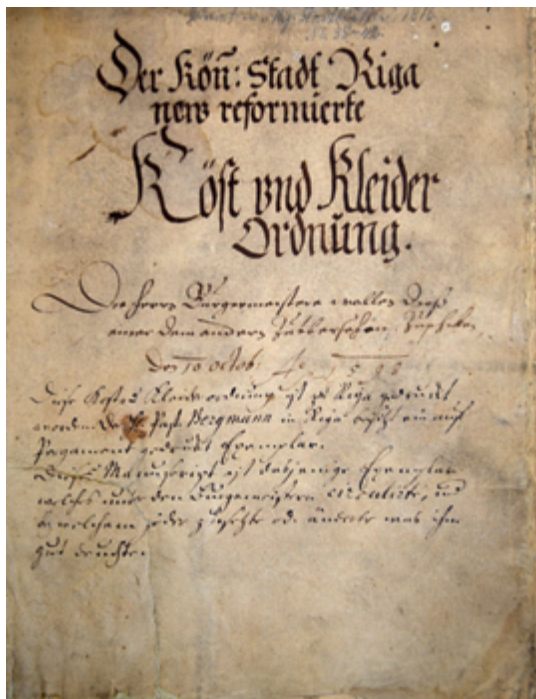 Der Kön: Stadt Riga
new reformierte
Köst vnd Kleider
Ordnung.
Die Herrn Bürgermeistere wollen dieß
einer dem andern
Den 10 octob:
Diese Kost u Kleiderordnung ist zu Riga gedruckt
worden. Der H. Past. Bergmann in Riga besitzt ein auf
Pergament gedrucktes Exemplar.
Dieses Manuscript ist dasjenige Exemplar
welches unter den Burgemeistern circulirte, und
in welchem jeder zusetzte od. änderte was ihm
gut deuchte.